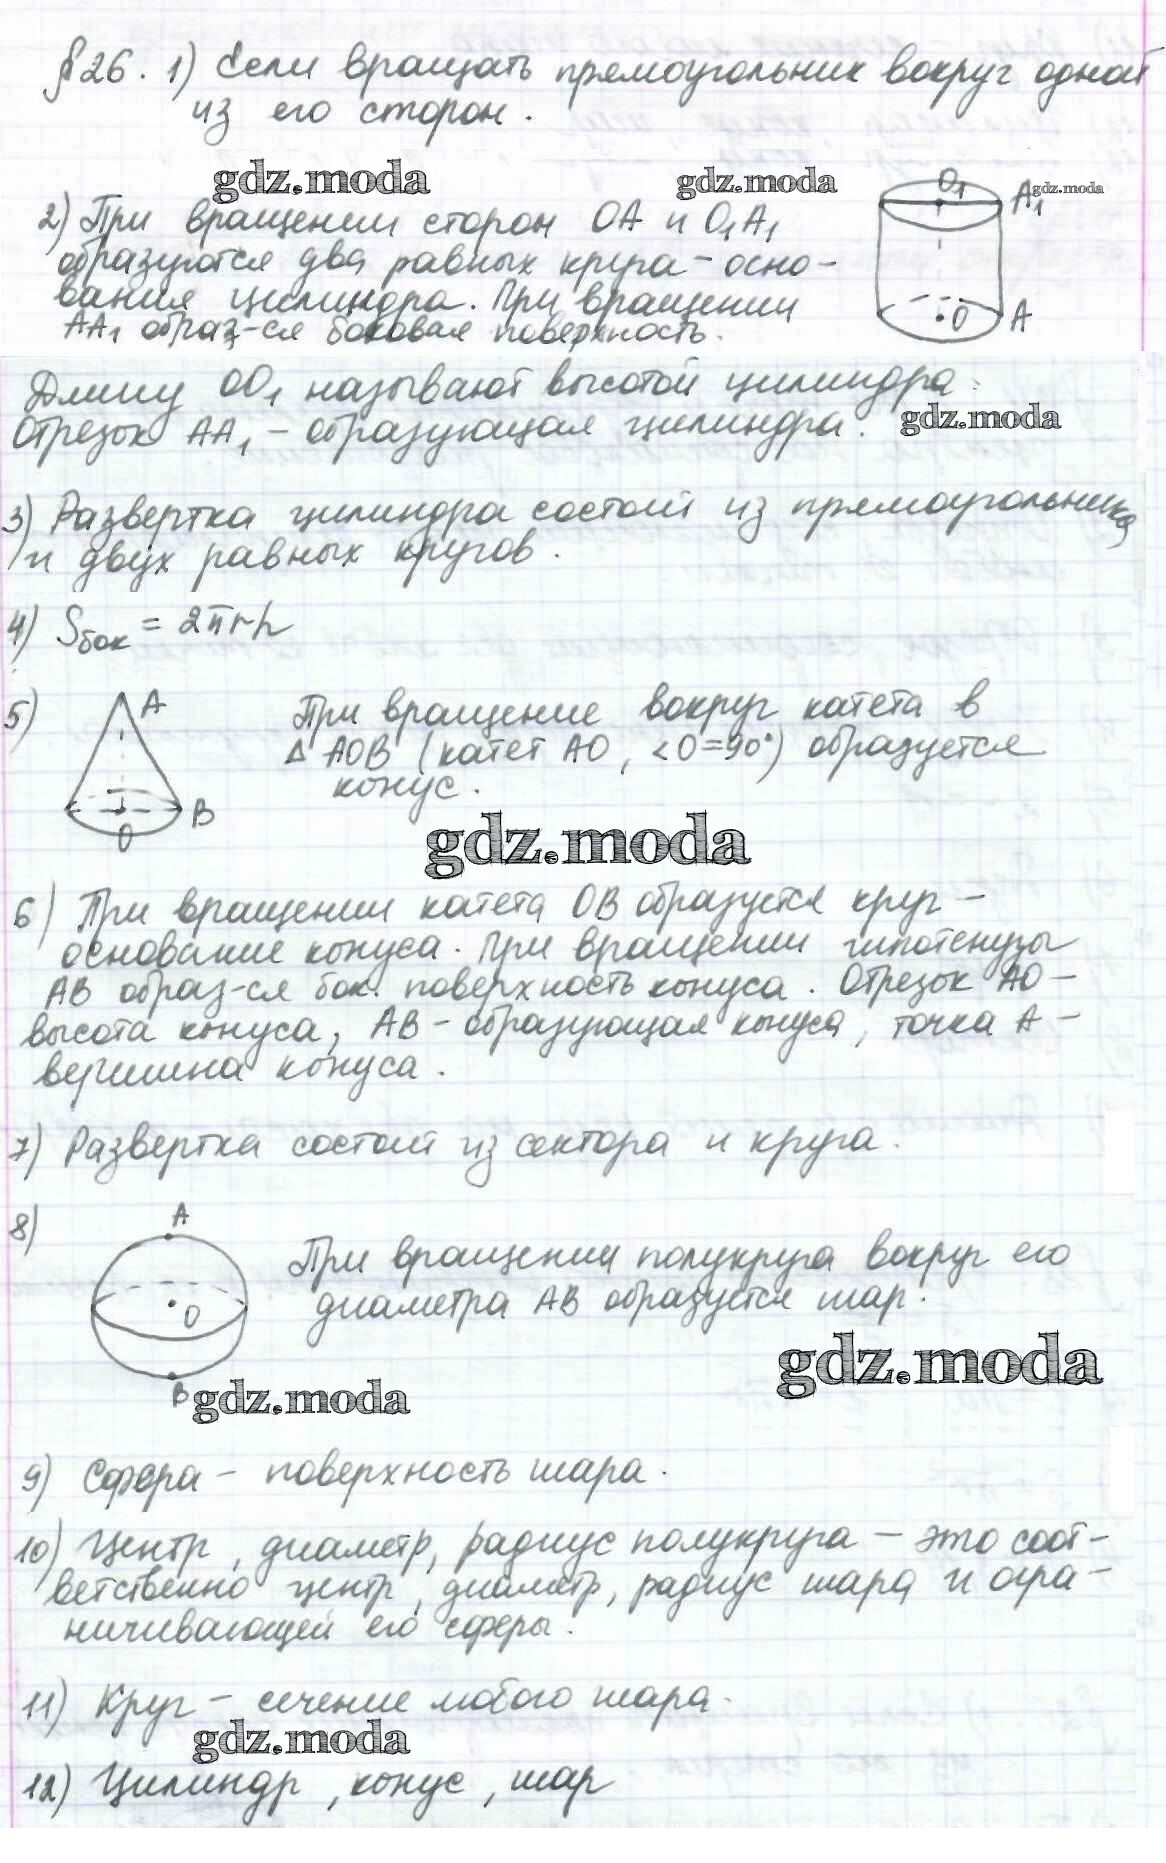 §26. 1) Если вращать прямоугольник вокруг одной
из его сторон.
gdz.moda
gdz.moda
O₁ A₁ gdz.moda
2) При вращении сторон OA и O₁A₁
образуются два равных круга – осно-
вания цилиндра. При вращении
AA₁ образ-ся боковая поверхность.
O A
Длину OO₁ называют высотой цилиндра.
Отрезок AA₁ – образующая цилиндра.
gdz.moda
3) Развертка цилиндра состоит из прямоугольника
и двух равных кругов.
4) Sбок = 2πrh
5) A
O B
При вращение вокруг катета в
Δ AOB (катет AO, <O=90°) образуется
конус.
gdz.moda
6) При вращении катета OB образуется круг –
основание конуса. При вращении гипотенузы
AB образ-ся бок. поверхность конуса. Отрезок AO –
высота конуса, AB – образующая конуса, точка A –
вершина конуса.
7) Развертка состоит из сектора и круга.
8) A
O
B
При вращении полукруга вокруг его
диаметра AB образуется шар.
gdz.moda
gdz.moda
9) Сфера – поверхность шара.
10) Центр, диаметр, радиус полукруга – это соот-
ветственно центр, диаметр, радиус шара и огра-
ничивающей его сферы.
11) Круг – сечение любого шара.
gdz.moda
12) Цилиндр, конус, шар